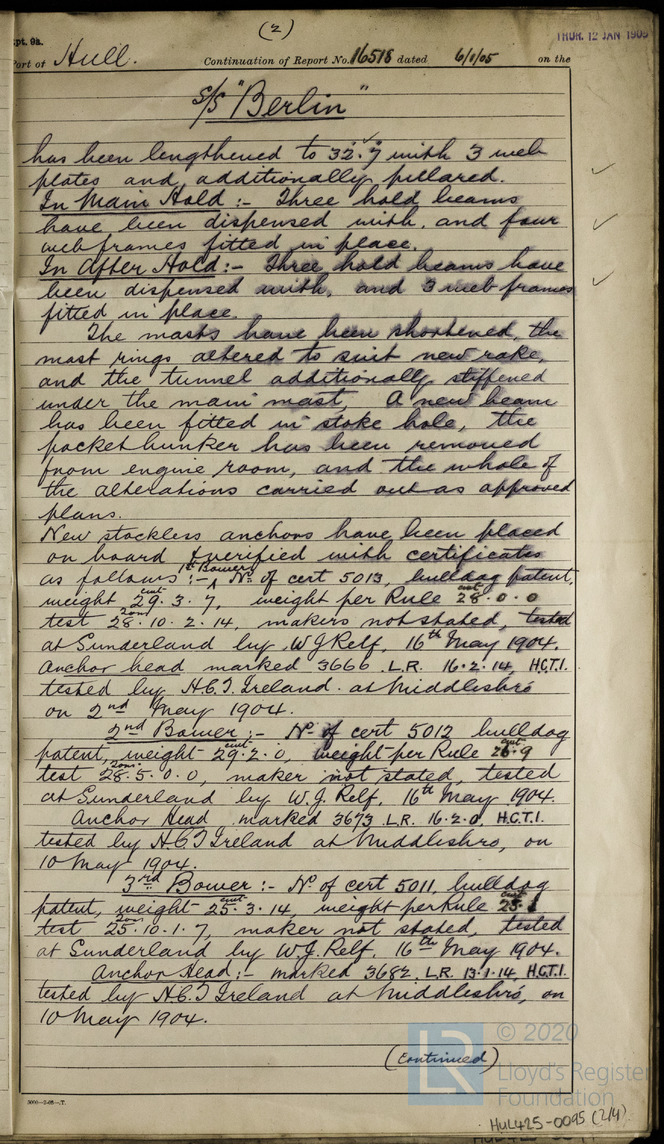 (2)
THUR. 12 JAN 1905
pt. 9a.
ort of Hull. Continuation of Report No. 16518 dated 6/1/05 on the
S/S "Berlin"
has been lengthened to 32.7 with 3 web
plates and additionally pillared.
In Main Hold :- Three hold beams
have been dispensed with, and four
web frames fitted in place.
In After Hold :- Three hold beams have
been dispensed with, and 3 web frames
fitted in place.
The masts have been shortened, the
mast rings altered to suit new rake,
and the tunnel additionally stiffened
under the main mast. A new beam
has been fitted in stoke hole, the
pocket bunker has been removed
from engine room, and the whole of
the alterations carried out as approved
plans.
New stockless anchors have been placed
on board & verified with certificates
as follows :- 1st Bower, No. of cert 5013, bulldog patent,
weight cwt 29.3.7, weight per Rule cwt 28.0.0
test tons 28.10.2.14, makers not stated, tested
at Sunderland by W J Relf, 16th May 1904.
Anchor head marked 3666 L.R. 16.2.14, H.C.T.I.
tested by H.C.T Ireland at Middlesbro
on 2nd May 1904.
2nd Bower :- No. of cert 5012 bulldog
patent, weight cwt 29.2.0, weight per Rule cwt
test tons 28.5.0.0, maker not stated, tested
at Sunderland by W.J. Relf, 16th May 1904.
Anchor Head marked 3673 L.R. 16.2.0, H.C.T.I.
tested by H.C.T Ireland at Middlesbro, on
10 May 1904.
3rd Bower :- No. of cert 5011, bulldog
patent, weight cwt 25.3.14, weight per Rule cwt
test tons 25.10.1.7, maker not stated, tested
at Sunderland by W.J. Relf, 16th May 1904.
Anchor Head :- marked 3682 L.R. 13.1.14, H.C.T.I.
tested by H.C.T Ireland at Middlesbro, on
10 May 1904.
(Continued)
LR © 2020
Lloyd's Register
Foundation
HUL425-0095 (2/4)